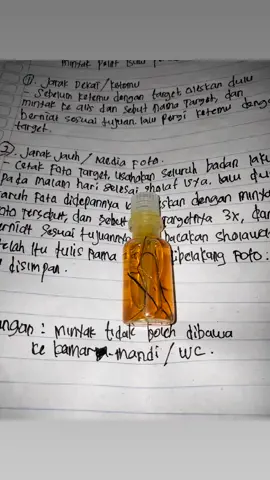 minyak Pelet
①. Jarak Dekat / ketemu
- Sebelum ketemu dengan target oleskan dulu
minyak ke alis dan sebut nama target, dan
berniat sesuai tujuan. lalu pergi ketemu dengan
target.
②. Jarak Jauh / Media Foto.
- Cetak Foto target, usahakan seluruh badan lalu
pada malam hari selesai sholat isya, lalu du
taruh Foto didepannya skan dengan minya
oto tersebut, dan sebut targetnya 3x, dan
berniat sesuai tujuann acakan sholawa
telah itu tulis nama dibelakang Foto.
disimpan.
angan : minyak tidak boleh dibawa
ke kamar mandi / WC.